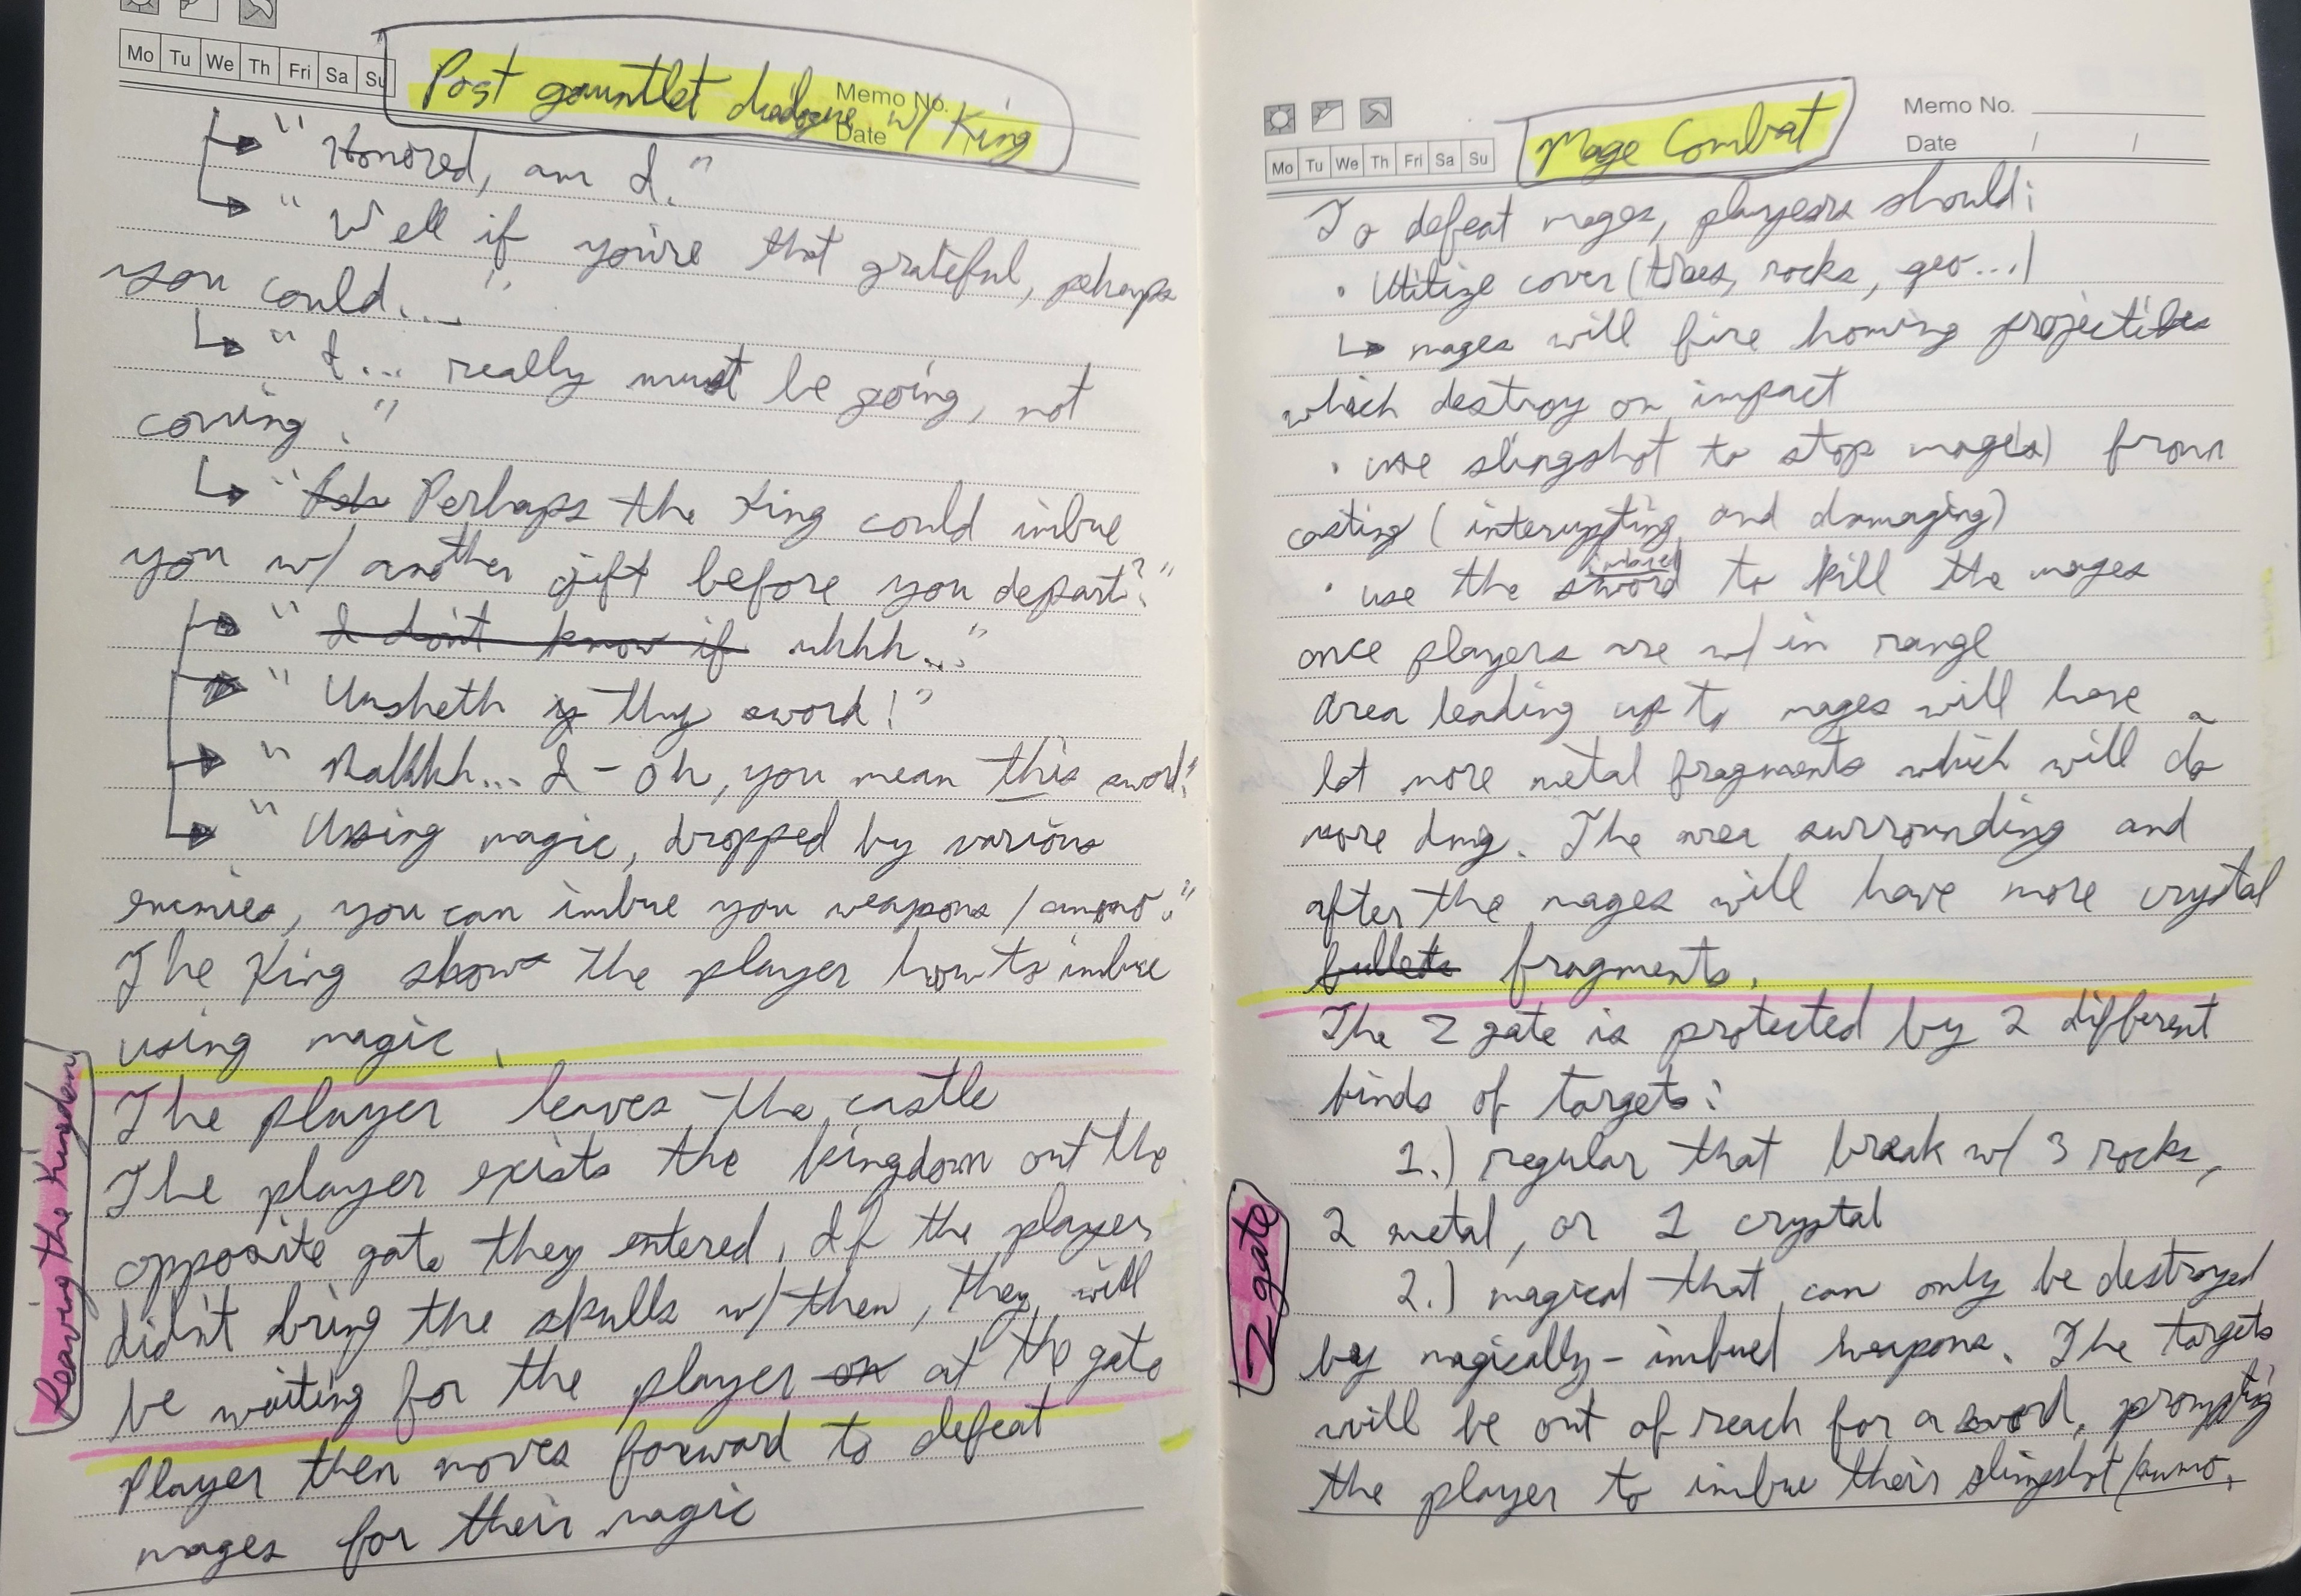 Mo Tu We Th Fri Sa Su
Memo No.
Date
Post gauntlet dialogue w/ King
↳ "Honored, am I."
↳ "Well if you're that grateful, perhaps
you could...."
↳ "I... really must be going, not
coming."
↳ "Perhaps the King could imbue
you w/ another gift before you depart?"
↳ "I don't know if uhhh..."
↳ "Unsheth thy sword!"
↳ "I - oh, you mean this sword!"
↳ "Using magic, dropped by various
enemies, you can imbue you weapons / ammo."
The King shows the player how to imbue
using magic.
Leaving the Kingdom
The player leaves the castle
The player exists the kingdom out the
opposite gate they entered. If the player
didn't bring the skulls w/ them, they will
be waiting for the player on at the gate
Player then moves forward to defeat
mages for their magic
Memo No.
Date / /
Mo Tu We Th Fri Sa Su
Mage Combat
To defeat mages, players should:
• Utilize cover (trees, rocks, geo...)
↳ mages will fire homing projectiles
which destroy on impact
• use slingshot to stop mage(s) from
casting (interupting and damaging)
imbued
• use the sword to kill the mages
once players are w/ in range
Area leading up to mages will have a
lot more metal fragments which will do
more dmg. The area surrounding and
after the mages will have more crystal
bullets fragments.
The Z gate is protected by 2 different
kinds of targets:
1.) regular that break w/ 3 rocks,
2 metal, or 1 crystal
Z gate
2.) magical that can only be destroyed
by magically-imbued weapons. The targets
will be out of reach for a sword, prompting
the player to imbue their slingshot/ammo.